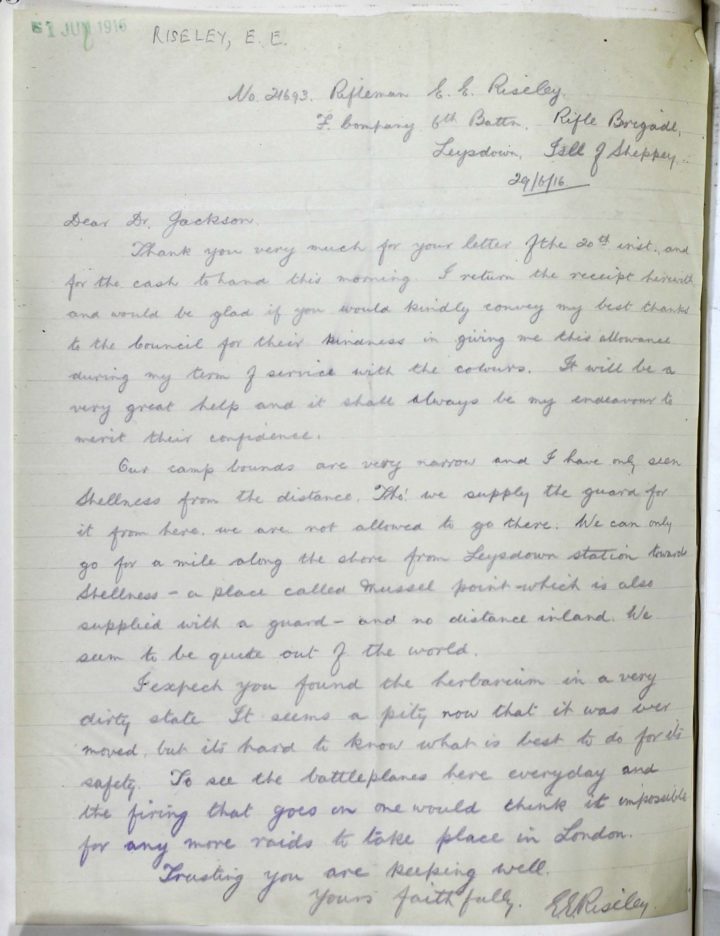 JUN 1916
RISELEY, E. E.
No. 21693. Rifleman E. E. Riseley.
F. Company 6th Battn. Rifle Brigade,
Leysdown, Isle of Sheppey.
29/6/16
Dear Dr. Jackson.
Thank you very much for your letter of the 20th inst., and
for the cash to hand this morning. I return the receipt herewith
and would be glad if you would kindly convey my best thanks
to the Council for their kindness in giving me this allowance
during my term of service with the colours. It will be a
very great help and it shall always be my endeavour to
merit their confidence.
Our camp bounds are very narrow and I have only seen
Shellness from the distance. Tho' we supply the guard for
it from here, we are not allowed to go there. We can only
go for a mile along the shore from Leysdown station towards
Shellness - a place called Mussel point - which is also
supplied with a guard - and no distance inland. We
seem to be quite out of the world.
I expect you found the herbarium in a very
dirty state It seems a pity now that it was ever
moved, but it's hard to know what is best to do for its
safety. To see the battleplanes here everyday and
the firing that goes on one would think it impossible
for any more raids to take place in London.
Trusting you are keeping well.
Yours faithfully. E E Riseley.